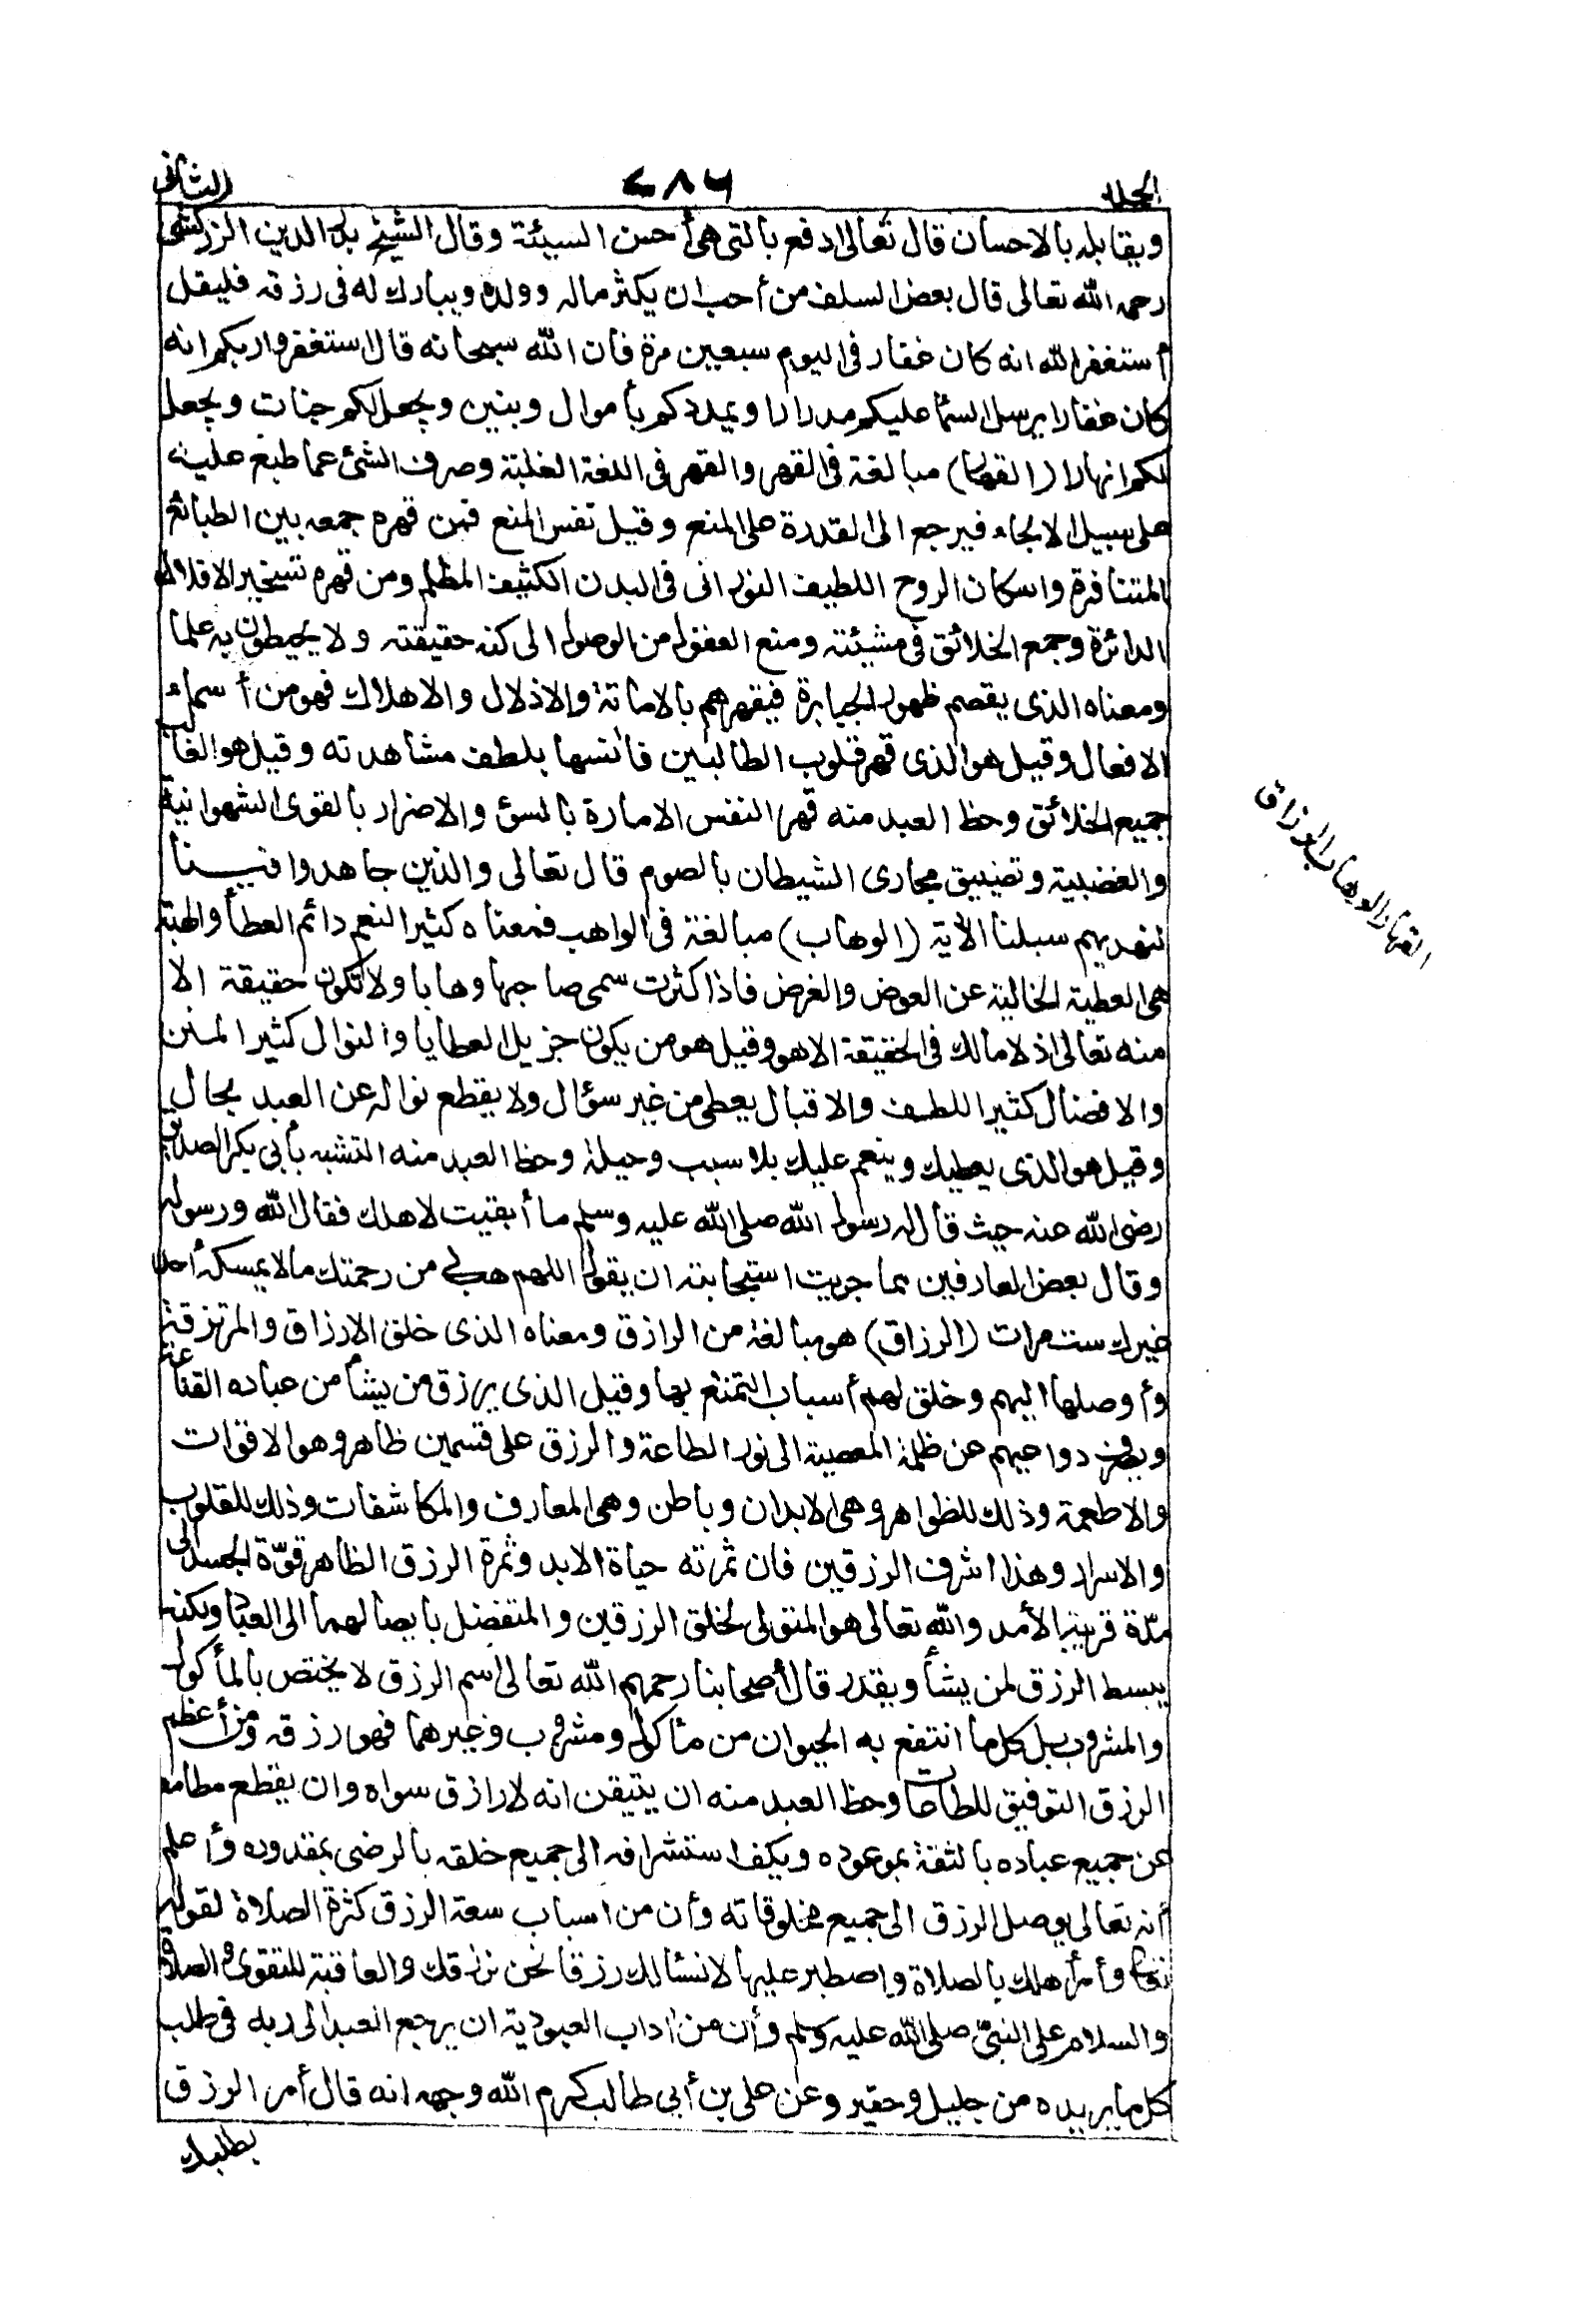 الجلد ٢٨٦ الثانى
ويقابله بالاحسان قال تعالى ادفع بالتى هى أحسن السيئة وقال الشيخ بدر الدين الزركشى
رحمه الله تعالى قال بعض السلف من أحب ان يكثر ماله وولده ويبارك له فى رزقه فليقل
أستغفر الله انه كان غفار فى اليوم سبعين مرة فان الله سبحانه قال استغفروا ربكم انه
كان غفارا يرسل السمأ عليكم مدرارا ويمددكم بأموال وبنين ويجعل لكم جنات ويجعل
لكم انهارا (القهار) مبالغة فى القهر والقهر فى اللغة الغلبة وصرف الشئ عما طبع عليه
على سبيل الالجاء فيرجع الى القدرة على المنع وقيل نفس المنع فمن قهره جمعه بين الطبائع
المتنافرة واسكان الروح اللطيف النورانى فى البدن الكثيف المظلم ومن قهره تسخير الافلاك
الدائرة وجمع الخلائق فى مشيئته ومنع العقول من الوصول الى كنه حقيقته ولا يحيطون به علما
ومعناه الذى يقصم ظهور الجبابرة فيقهرهم بالاماتة والاذلال والاهلاك فهو من أسماء
الافعال وقيل هو الذى قهر قلوب الطالبين فانسها بلطف مشاهدته وقيل هو الغالب
جميع الخلائق وحظ العبد منه قهر النفس الامارة بالسؤ والاضرار بالقوى الشهوانية
والغضبية وتضييق مجارى الشيطان بالصوم قال تعالى والذين جاهدوا فينا
لنهدينهم سبلنا الأية (الوهاب) مبالغة فى الواهب فمعناه كثير النعم دائم العطأ والهبة
هى العطية الخالية عن العوض والغرض فاذا كثرت سمى صاحبها وهابا ولا تكون حقيقة الا
منه تعالى اذ لا مالك فى الحقيقة الا هو وقيل هو من يكون جزيل العطايا والنوال كثير المنن
والافضال كثير اللطف والاقبال يعطى من غير سؤال ولا يقطع نواله عن العبد بحال
وقيل هو الذى يعطيك وينعم عليك بلا سبب وحيلة وحظ العبد منه التشبه بأبى بكر الصديق
رضى الله عنه حيث قال له رسول الله صلى الله عليه وسلم ما أبقيت لاهلك فقال الله ورسوله
وقال بعض العارفين مما جربت استجابته ان يقول اللهم هب لى من رحمتك مالا يمسكه أحد
غيرك ست مرات (الرزاق) هو مبالغة من الرازق ومعناه الذى خلق الارزاق والمرتزقة
وأوصلها اليهم وخلق لهم أسباب التمتع بها وقيل الذى يرزق من يشأ من عباده القناعة
ويصرف دواعيهم عن ظلمة المعصية الى نور الطاعة والرزق على قسمين ظاهر وهو الاقوات
والاطعمة وذلك للظواهر وهى الابدان وباطن وهى المعارف والمكاشفات وذلك للقلوب
والاسرار وهذا اشرف الرزقين فان ثمرته حياة الابد وثمرة الرزق الظاهر قوّة الجسد الى
مدّة قريبة الأمد والله تعالى هو المتولى لخلق الرزقين والمتفضل بايصالهما الى العباد ولكنه
يبسط الرزق لمن يشأ ويقدر قال أصحابنا رحمهم الله تعالى اسم الرزق لا يختص بالمأكول
والمشروب بل كل ما انتفع به الحيوان من مأكول ومشروب وغيرهما فهو رزقه ومن أعظم
الرزق التوفيق للطاعات وحظ العبد منه ان يتيقن انه لا رازق سواه وان يقطع مطامعه
عن جميع عباده بالثقة بموعوده ويكف استشرافه الى جميع خلقه بالرضى بمقدوره وأعلم
أنه تعالى يوصل الرزق الى جميع مخلوقاته وأن من اسباب سعة الرزق كثرة الصلاة لقوله
تعالى وأمر أهلك بالصلاة واصطبر عليها لا نسئلك رزقا نحن نرزقك والعاقبة للتقوى والصلاة
والسلام على النبىّ صلى الله عليه وسلم وأن من اداب العبودية ان يرجع العبد الى ربه فى طلب
كل ما يريده من جليل وحقير وعن على بن أبى طالب كرم الله وجهه انه قال أمر الرزق
بطلبك
القهار الوهاب الرزاق